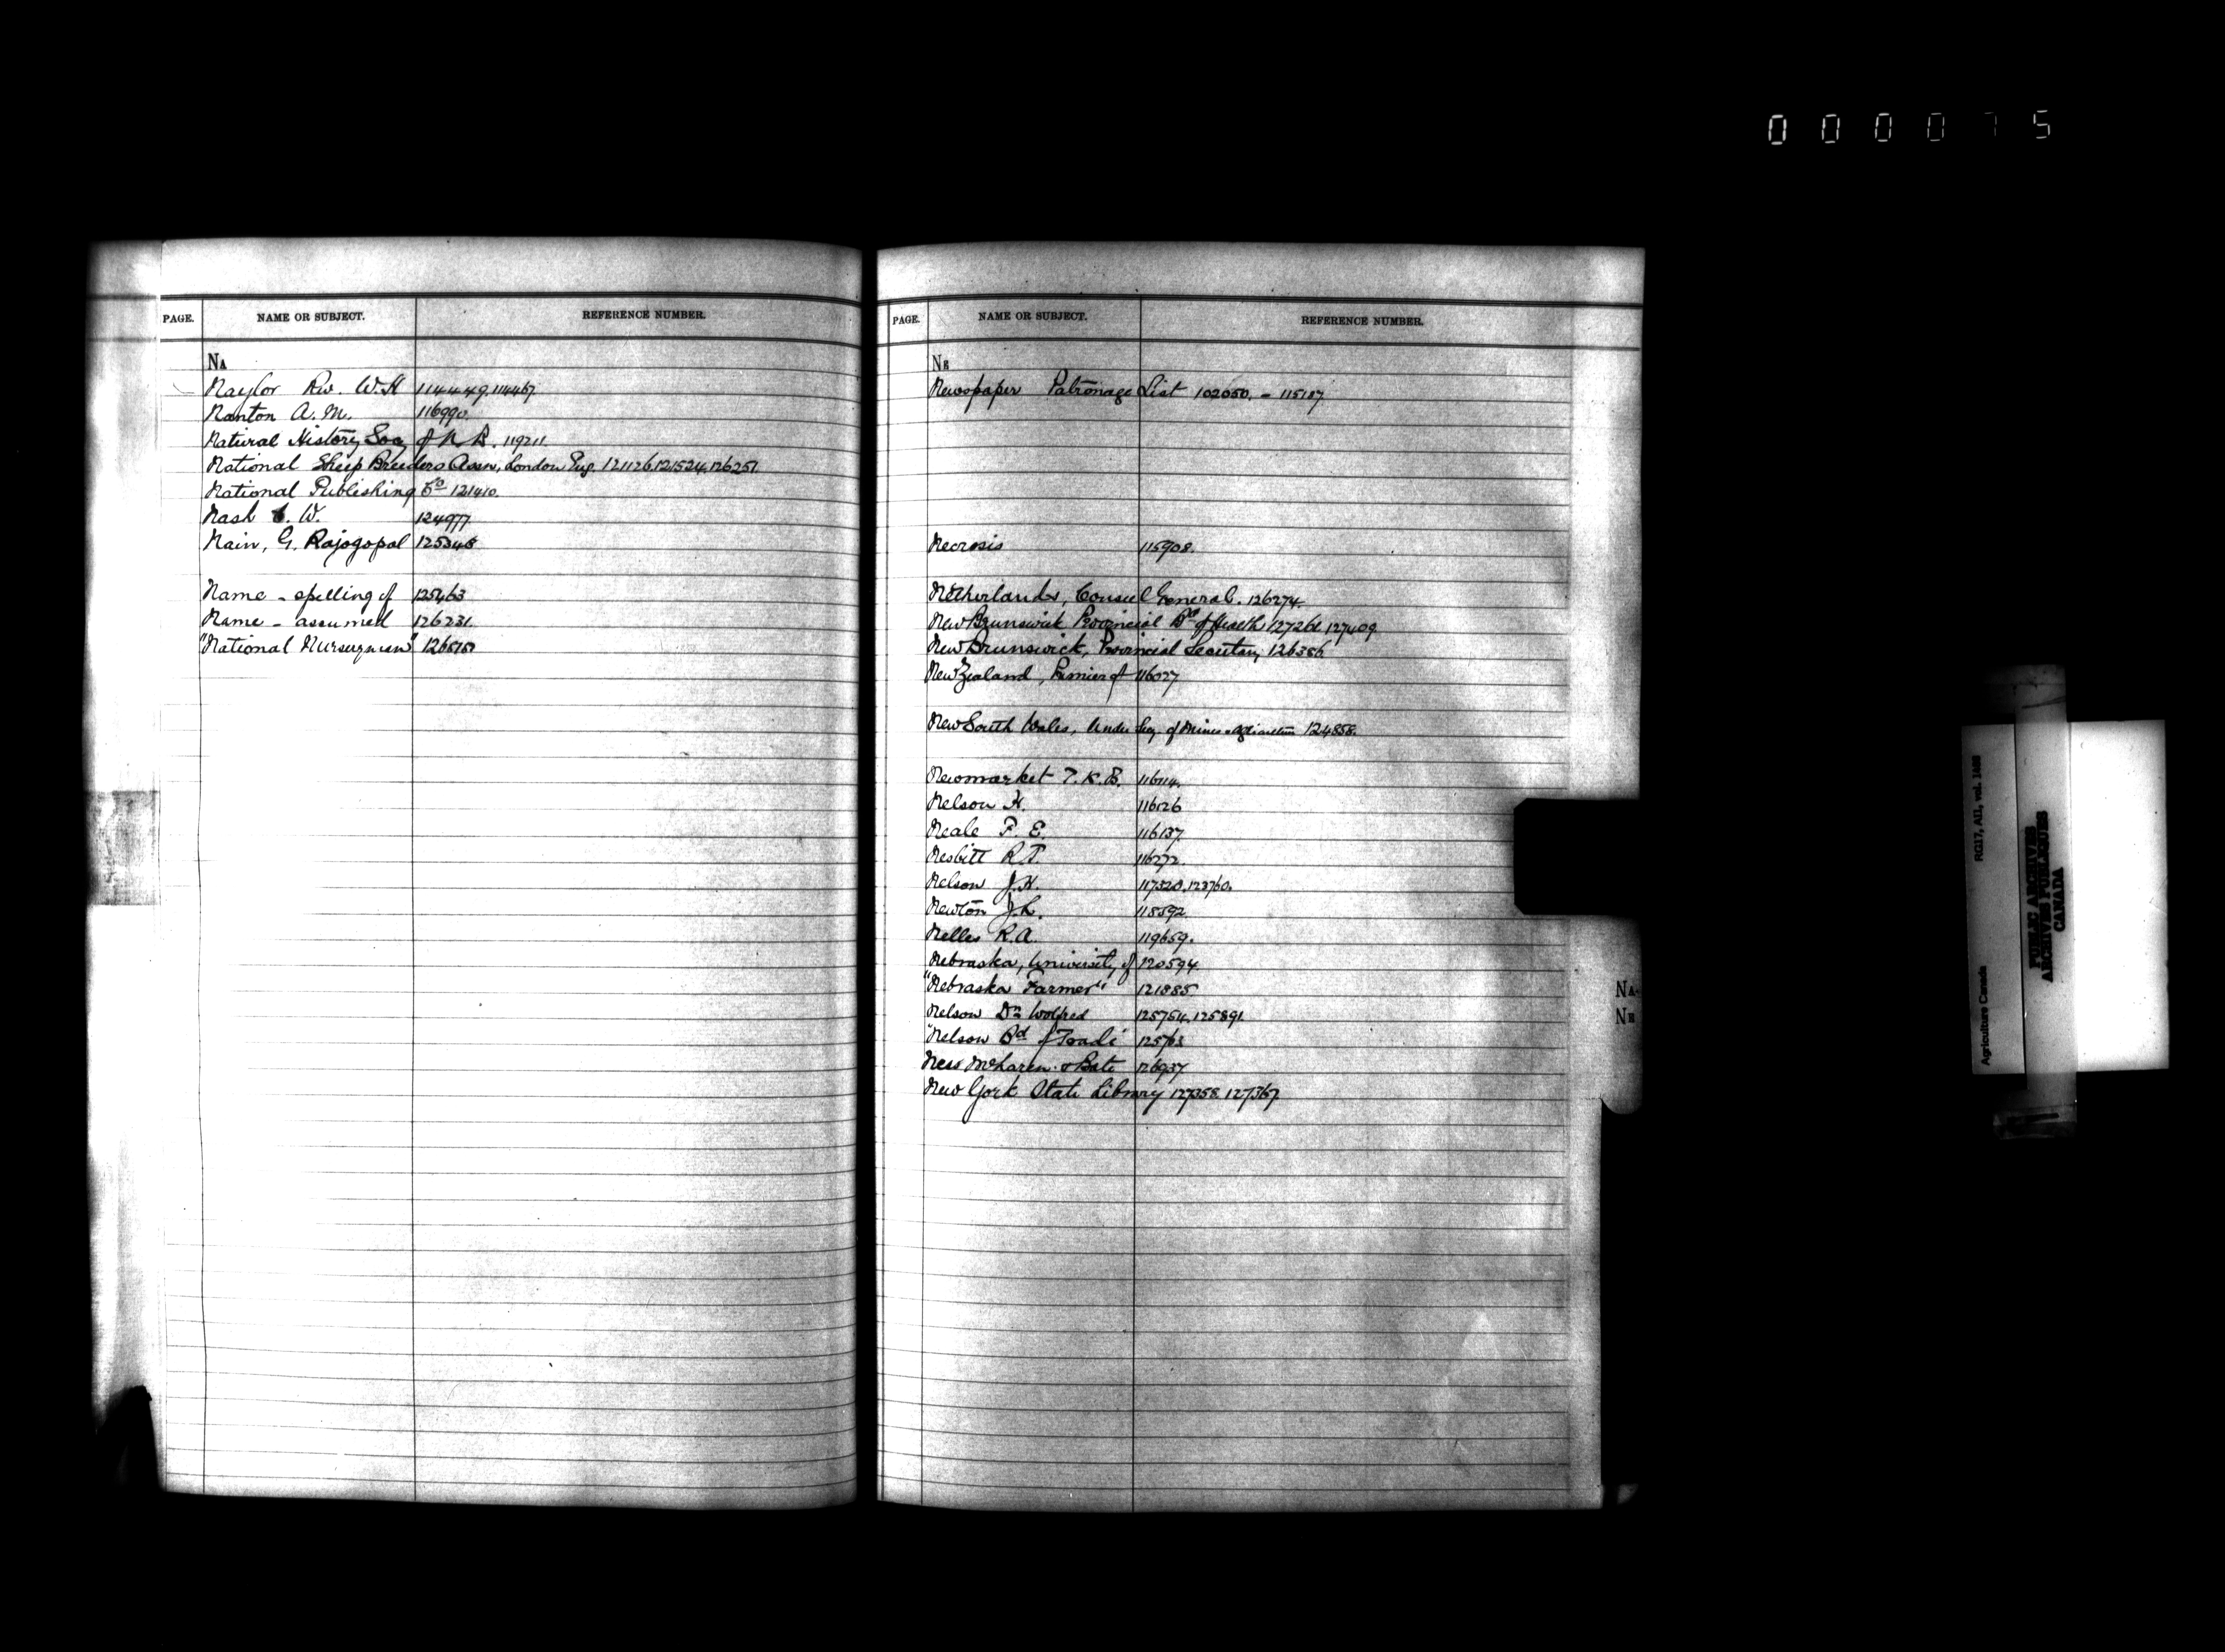 000075
PAGE. NAME OR SUBJECT. REFERENCE NUMBER.
NA
Naylor Rev. W.H 114449. 114467.
Nanton A. M. 116990.
Natural History Socy of N. B. 119211.
National Sheep Breeders Assn, London Eng. 121126. 121524. 126251
National Publishing Co 121410.
Nash C. W. 124977
Nain, G. Rajogopal 125346
Name - spelling of 125463
Name - assumed 126231.
"National Nurseryman"
PAGE. NAME OR SUBJECT. REFERENCE NUMBER.
NE
Newspaper Patronage List 102050. - 115187.
Necrosis 115908.
Netherlands, Consul General. 126274.
New Brunswick Provincial Bd of Health 127261. 127409.
New Brunswick, Provincial Secretary 126386.
New Zealand, Premier of 116027
New South Wales, Under Secy. of Mines & Agriculture 124858.
Newmarket T. K. B. 116114.
Nelson H. 116126
Neale F. E. 116137.
Nesbitt R.T. 116272
Nelson J.H. 117320. 123760.
Newton J.L. 118592
Nelles R.A. 119659.
Nebraska, University of 120594.
"Nebraska Farmer" 121885.
Nelson Dr. Wolfred 125754. 125891.
"Nelson Bd of Trade" 125763
Ness McLaren & Bate 126937
New York State Library 127358. 127367.
NA-
NE
Agriculture Canada RG17, AII, vol. 1488
PUBLIC ARCHIVES
ARCHIVES PUBLIQUES
CANADA